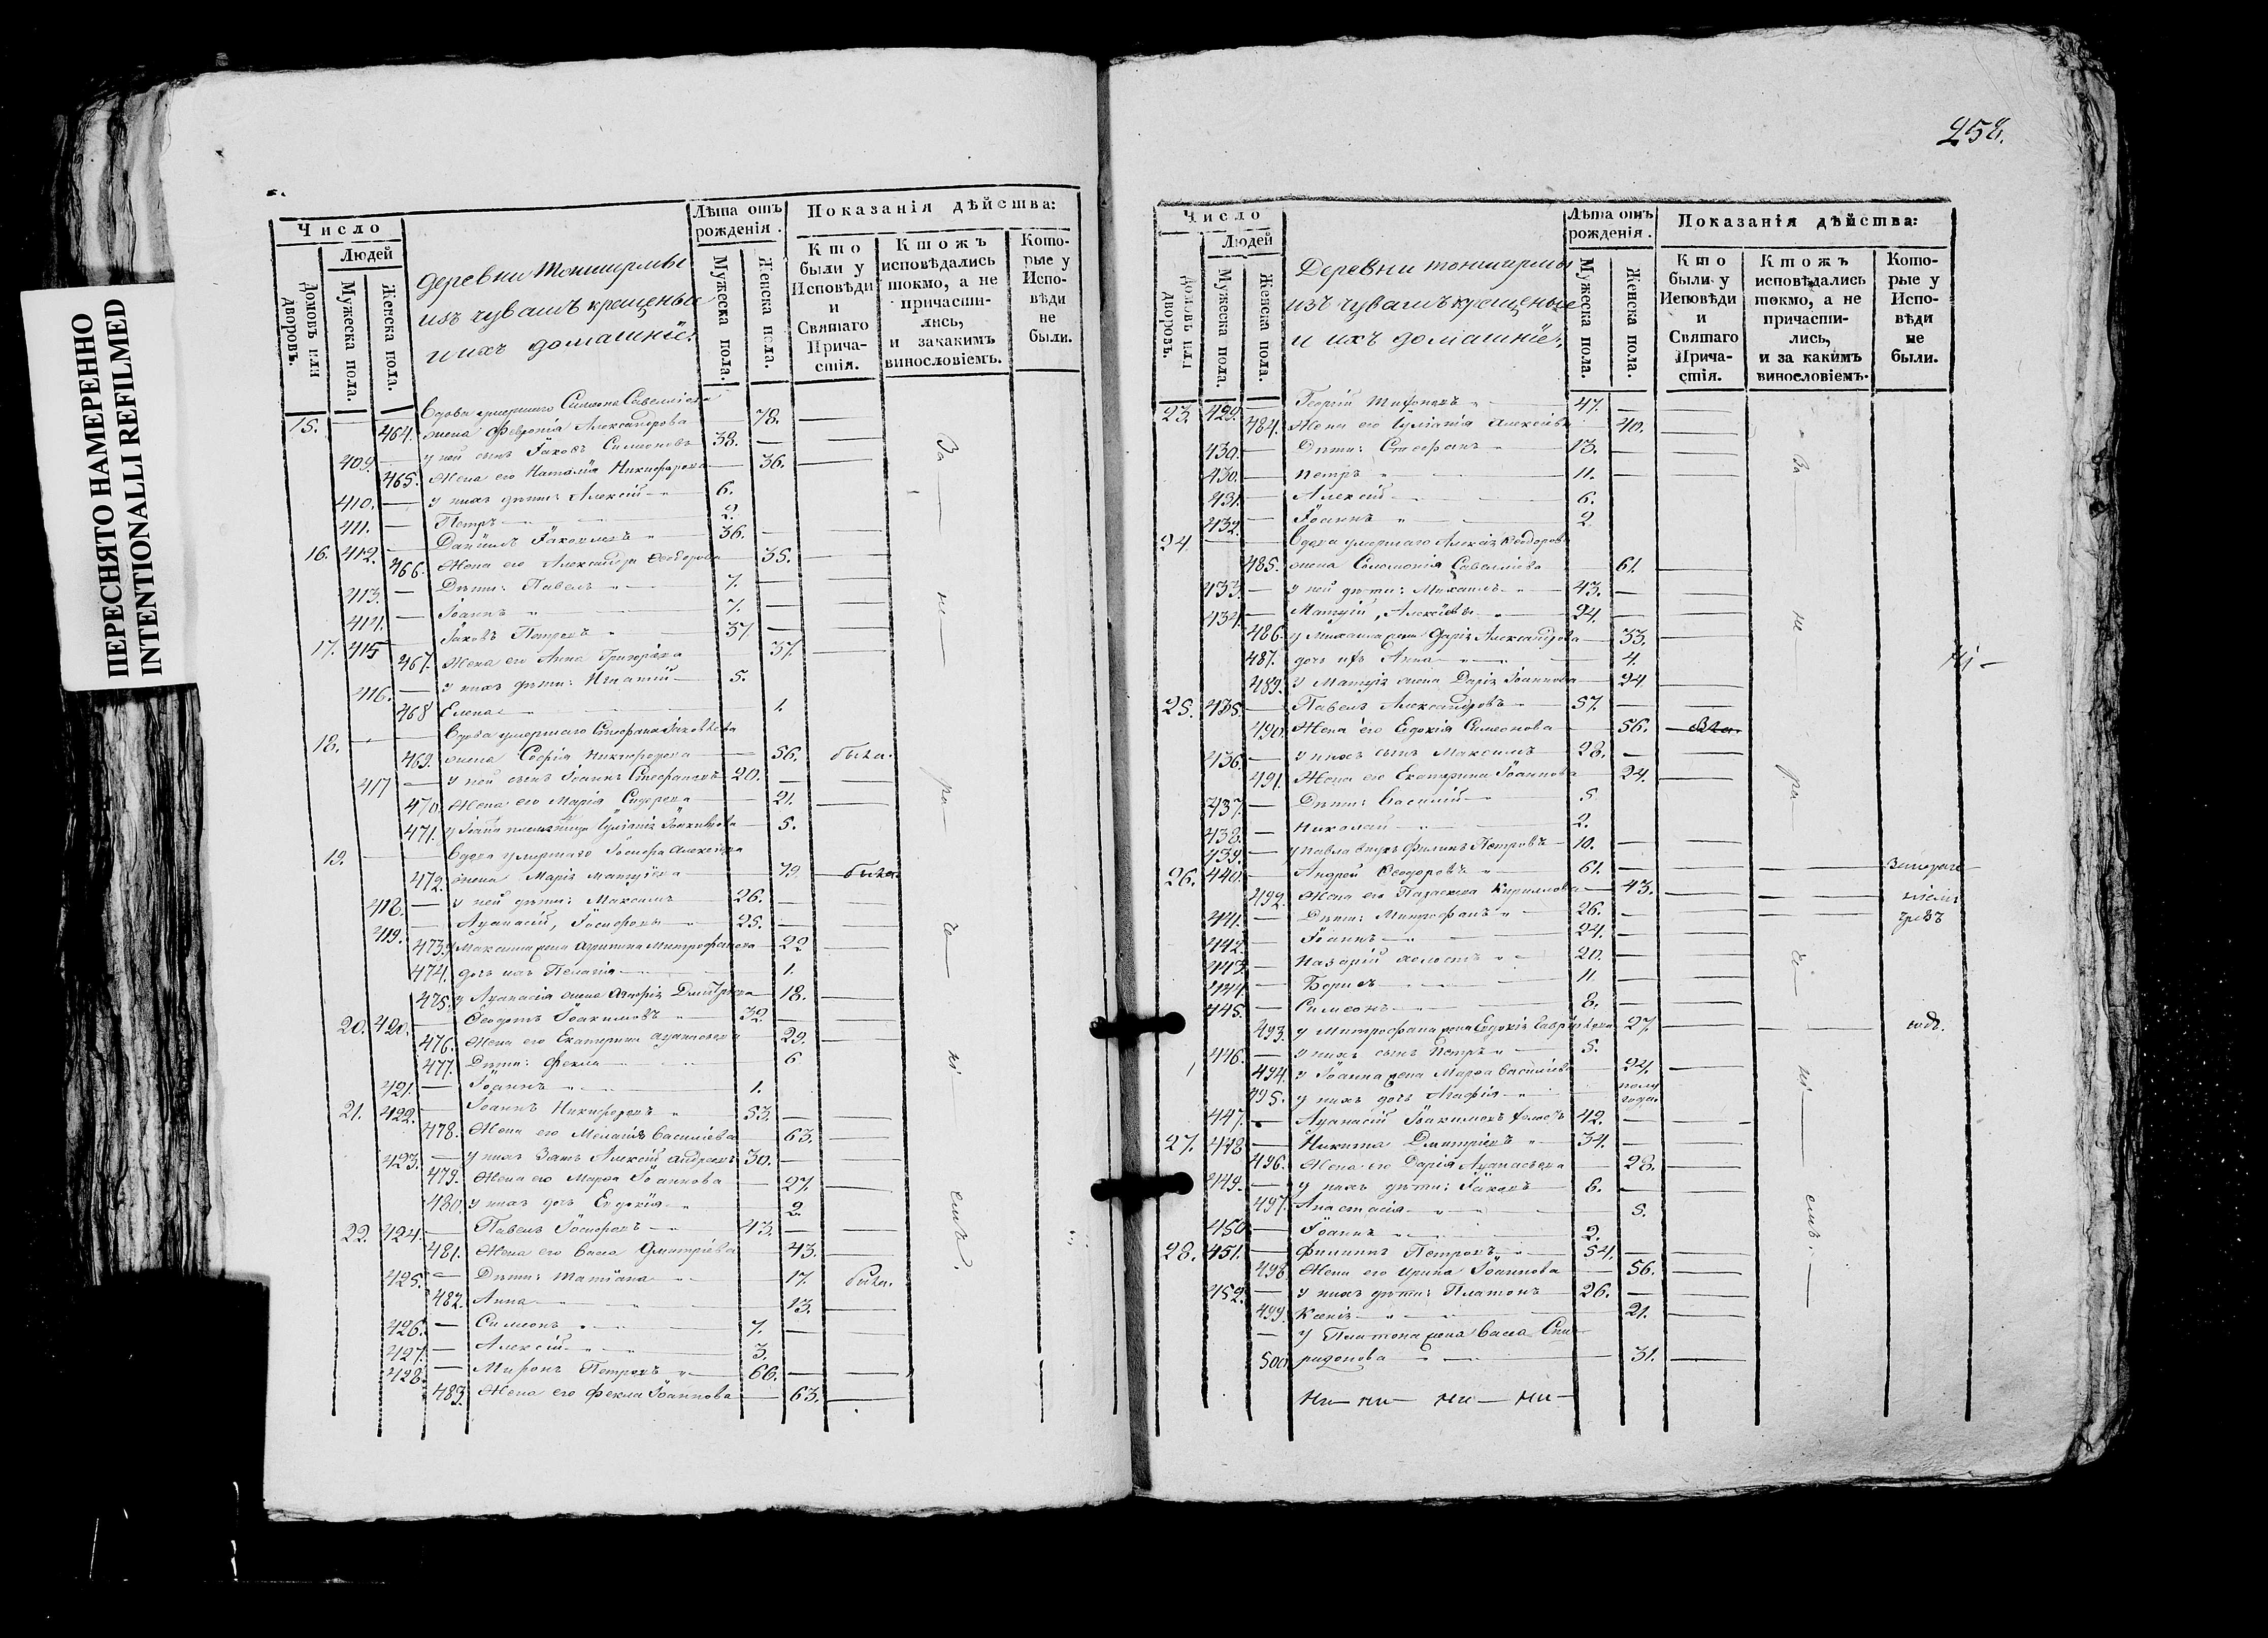 ПЕРЕСНЯТО НАМЕРЕННО
INTENTIONALLI REFILMED
Число
Людей
Домовъ или дворовъ.
Мужеска пола.
Женска пола.
деревни
изъ чувашъ крещеные
и ихъ домашнїе.
Лѣта отъ рожденія.
Мужеска пола.
Женска пола.
Показанія дѣйства:
Кто были у Исповѣди и Святаго Причастія.
Ктожъ исповѣдались токмо, а не причастились, и закакимъ винословіемъ.
Которые у Исповѣди не были.
15. Вдова умершаго Симеона Савелліева
464. жена Февронія Александрова 78.
409. у ней сынъ Іаковъ Симеоновъ 38.
465. Жена его Наталія Никифорова 36.
410. у нихъ дѣти: Алексій 6.
411. Петръ 2.
16. 412. Даніилъ 36.
466. Жена его Александра Ѳеодорова 35.
413. Дѣти: Павелъ 7.
414. Іоаннъ 7.
17. 415 Іаковъ Петровъ 37
467. Жена его Анна Григорьева 37.
416. у нихъ дѣти: Игнатій 5.
468 Елена 1.
18. Вдова умершаго Стефана
469. жена Софія Никифорова 56. была.
417 у ней сынъ Іоаннъ Стефановъ 20.
470. Жена его Марія 21.
471. 5.
19. Вдова умершаго Іосифа Алексѣева
472. жена Марія 79 была.
418. у ней дѣти: Максимъ 26.
419. Аѳанасій, Іосифовы 25.
473. у Максима жена Агрипина Митрофанова 22
474. дочь ихъ Пелагія 1.
475. у Аѳанасія жена 18.
20. 420. Ѳеодотъ Іоакимовъ 32.
476. Жена его Екатерина Аѳанасьева 29.
477. Дѣти: Фекла 6
421. Іоаннъ 1.
21. 422. Іоаннъ Никифоровъ 53.
478. Жена его Меланія Василіева 63.
423. у нихъ Зять Алексій Андреевъ 30.
479. Жена его Марѳа Іоаннова 27.
480. у нихъ дочь Евдокія 2.
22. 424. Павелъ Іосифовъ 43.
481. Жена его Васса Дмитріева 43.
425. Дѣти: Татіана 17. была.
482. Анна 13.
426. Симеонъ 7.
427. Алексій 3.
428. Миронъ Петровъ 66.
483. Жена его Фекла Іоаннова 63.
258.
Число
Людей
Домовъ или дворовъ.
Мужеска пола.
Женска пола.
Деревни
изъ чувашъ крещеные
и ихъ домашнїе.
Лѣта отъ рожденія.
Мужеска пола.
Женска пола.
Показанія дѣйства:
Кто были у Исповѣди и Святаго Причастія.
Ктожъ исповѣдались токмо, а не причастились, и за какимъ винословіемъ.
Которые у Исповѣди не были.
23. 429. Георгій 47.
484. Жена его Алексіева 40.
430. Дѣти: Стефанъ 13.
430. Петръ 11.
431. Алексій 6.
432. Іоаннъ 2
24. Вдова умершаго Алексія Ѳеодорова
485. жена Соломонія Савелліева 61.
433. у ней дѣти: Михаилъ 43.
434. Матѳій, Алексіевы 24.
486. у Михаила жена Дарія Александрова 33.
487. дочь ихъ Анна 4.
489. у Матѳія жена Дарія Іоаннова 24
25. 435. Павелъ Александровъ 57.
490. Жена его Евдокія Симеонова 56.
436. у нихъ сынъ Максимъ 28.
491. Жена его Екатерина Іоаннова 24.
437. Дѣти: Василій 5
438. Николай 2.
439. у Павла внукъ Филипъ Петровъ 10.
26. 440. Андрей Ѳеодоровъ 61.
492. Жена его Параскева Кириллова 43.
441. Дѣти: Митрофанъ 26.
442. Іоаннъ 24.
443. Назарій холостъ 20.
444. Борисъ 11
445. Симеонъ 8.
493. у Митрофана жена Евдокія 27.
446. у нихъ сынъ Петръ 5.
494. у Іоанна жена Марѳа Василіева 24.
495. у нихъ дочь Агафія полугода.
447. Аѳанасій Іоакимовъ 42.
27. 448 Никита Дмитріевъ 34.
496. Жена его Дарія Аѳанасьева 28.
449. у нихъ дѣти: Іаковъ 6.
497. Анастасія 5.
450 Іоаннъ 2.
28. 451. Филиппъ Петровъ 54.
498. Жена его Ирина Іоаннова 56.
452. у нихъ дѣти: Платонъ 26.
499. Ксенія 21.
у Платона жена Васса Спи
500 ридонова 31.